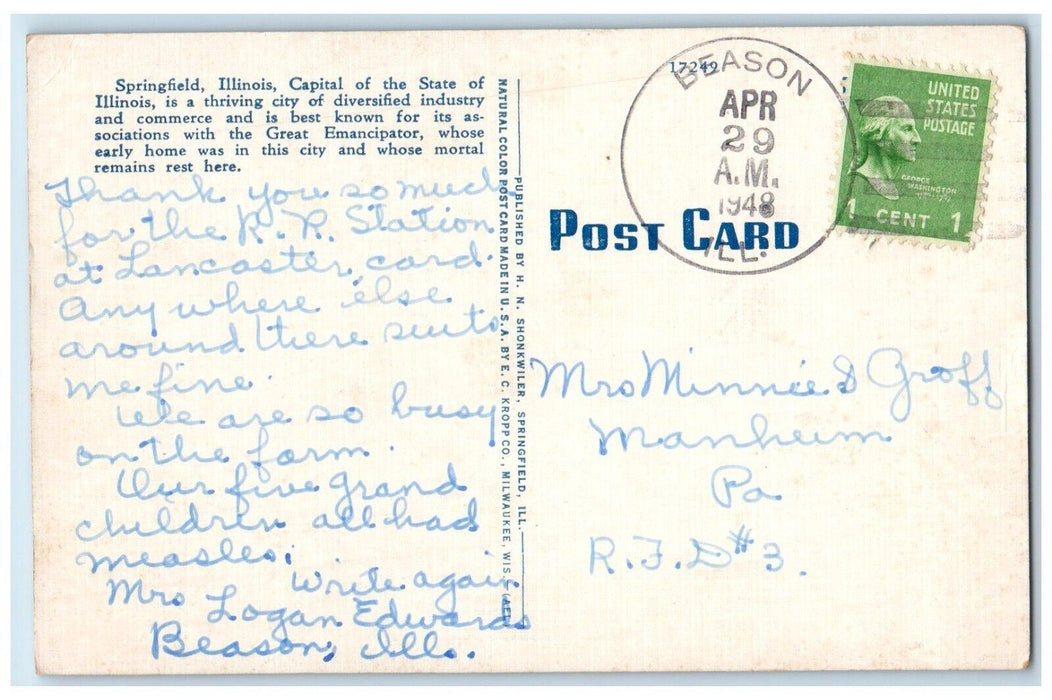 Springfield, Illinois, Capital of the State of
Illinois, is a thriving city of diversified industry
and commerce and is best known for its as-
sociations with the Great Emancipator, whose
early home was in this city and whose mortal
remains rest here.
Thank you so much
for the R. R. Station
at Lancaster, card.
Any where else
around there suits
me fine.
We are so busy
on the farm.
Our five grand
children all had
measles.
Write again
Mrs Logan Edwards
Beason, Ill.
PUBLISHED BY H. N. SHONKWILER, SPRINGFIELD, ILL.
NATURAL COLOR POST CARD MADE IN U. S. A. BY E. C. KROPP CO., MILWAUKEE, WIS.
17249
BEASON
APR
29
A.M.
1948
ILL.
POST CARD
UNITED
STATES
POSTAGE
GEORGE
WASHINGTON
1 CENT 1
Mrs Minnie S Groff
Manheim
Pa
R.F.D #3.